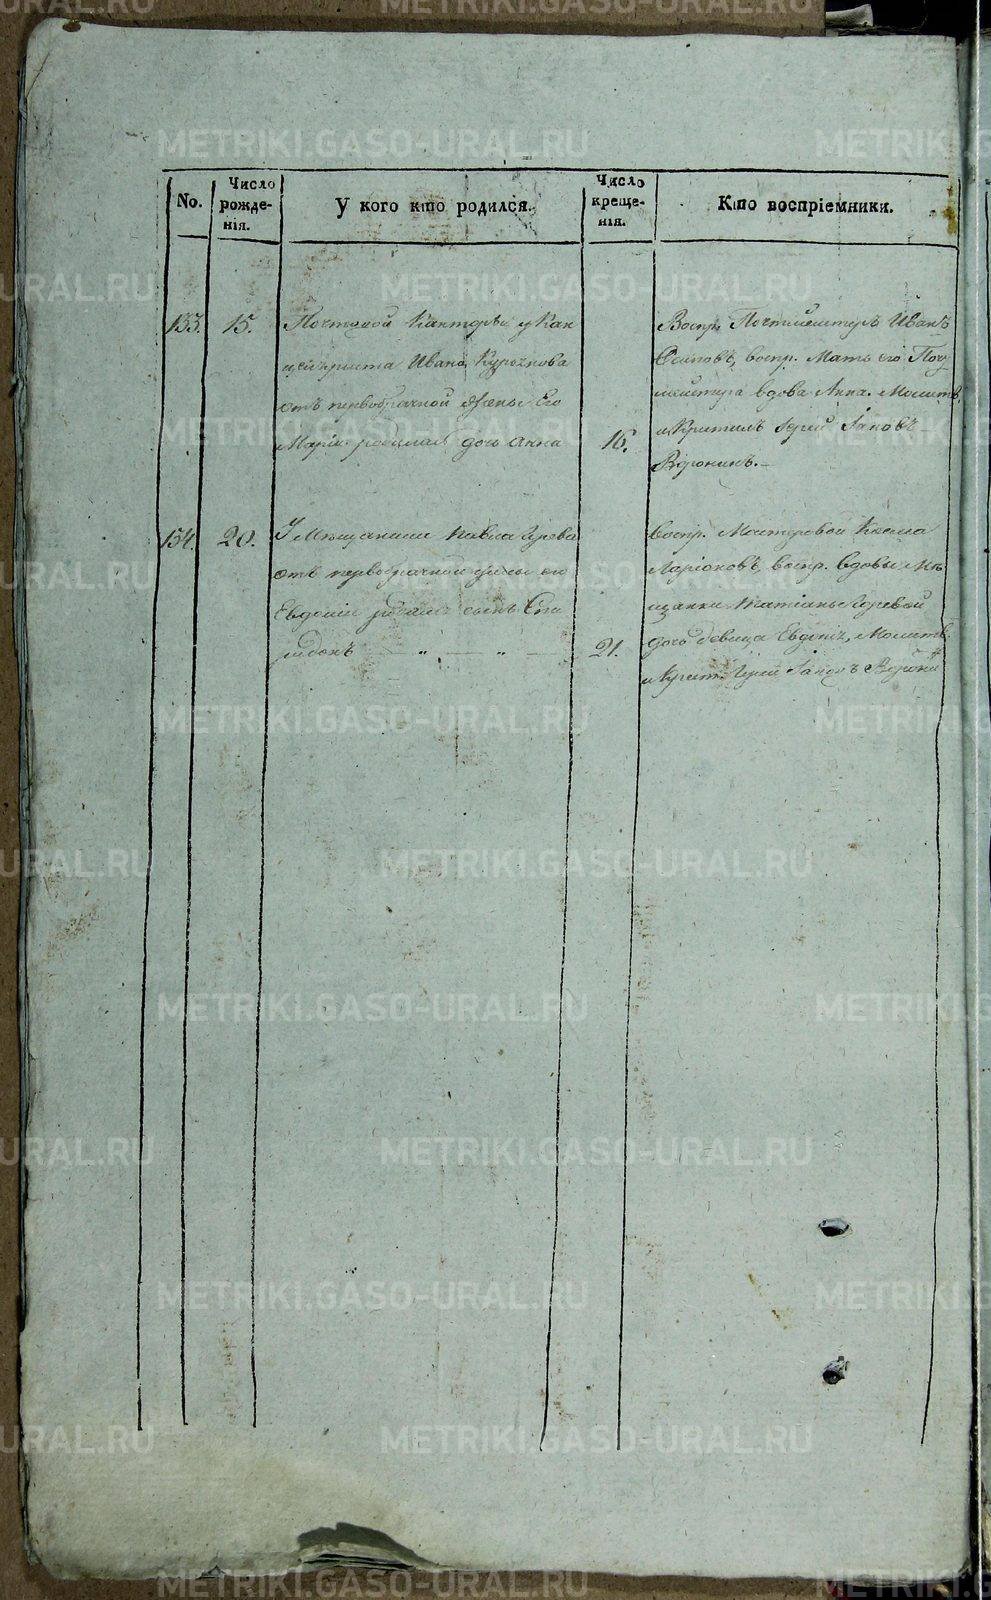 No.
Число рожде- нія.
У кого кто родился.
Число креще- нія.
Кто воспріемники.
133. 15.
Почтовой Канторы у Кан
целяриста Ивана Курочкова
отъ первобрачной жены Его
Маріи родилась дочь Анна
16.
Воспр. Почтмейстеръ Иванъ
Осиповъ, воспр. Мать его Поч
мейстера вдова Анна. Молитв.
и Крестилъ Іерей Іаковъ
Воронинъ.
134. 20.
У Мещанина Павла
отъ первобрачной жены ея
Евдокіи родился сынъ Спи
ридонъ
21.
воспр. Мастеровой Козма
Ларіоновъ, воспр. вдовы Ме
щанки Татіаны
дочь девица Евдокія, Молитв.
и Крест. Іерей Іаковъ Воронин
METRIKI.GASO-URAL.RU